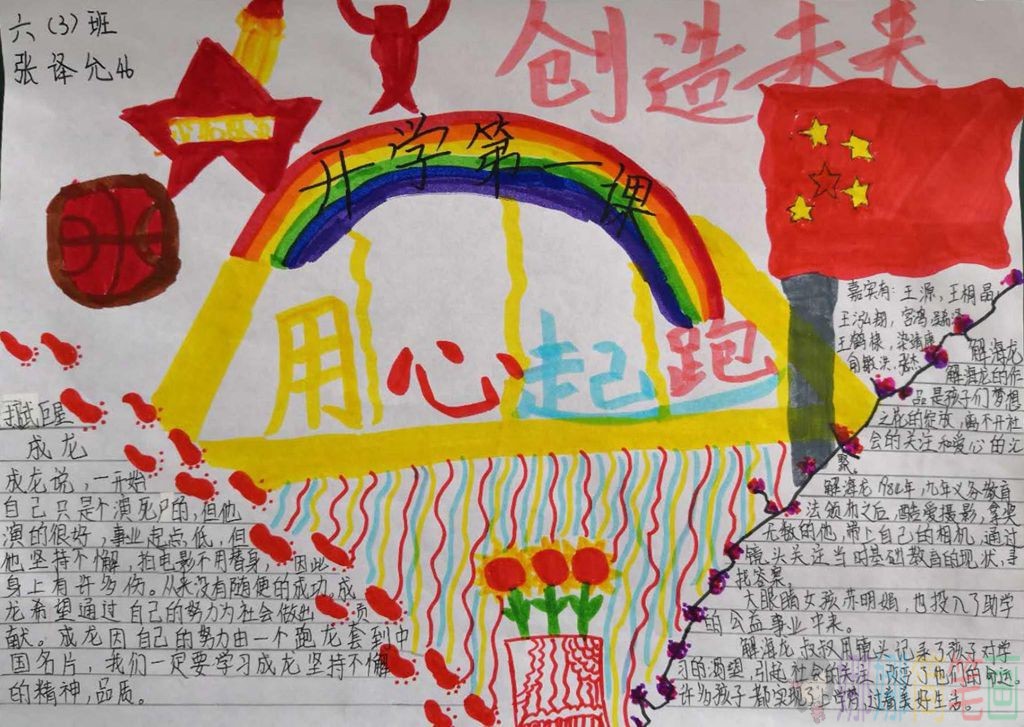 六(3)班
张译允46
创造未来
开学第一课
用心起跑
武巨星
成龙
成龙说,一开始
自己只是个演死尸的,但他
演的很好,事业起点低,但
他坚持不懈,拍电影不用替身,因此
身上有许多伤。从来没有随便的成功。成
龙希望通过自己的努力为社会做出一贡
献。成龙因自己的努力由一个跑龙套到中
国名片,我们一定要学习成龙坚持不懈
的精神,品质。
嘉宾有:王源,王桐晶
王泓翔,宫鸿
王鹤棣,染靖康
俞敏洪,张杰
解海龙
解海龙的作
品是孩子们梦想
之花的绽放,离不开社
会的关注和爱心的汇
聚。
解海龙1986年,九年义务教育
法颁布之后,酷爱摄影,拿奖
无数的他,带上自己的相机,通过
镜头关注当时基础教育的现状,寻
找答案,
大眼睛女孩苏明娟,也投入了助学
的公益事业中来。
解海龙叔叔用镜头记录了孩子对学
习的渴望,引起社会的关注,改变了他们的命运。
许为孩子都实现了上学梦,过着美好生活。